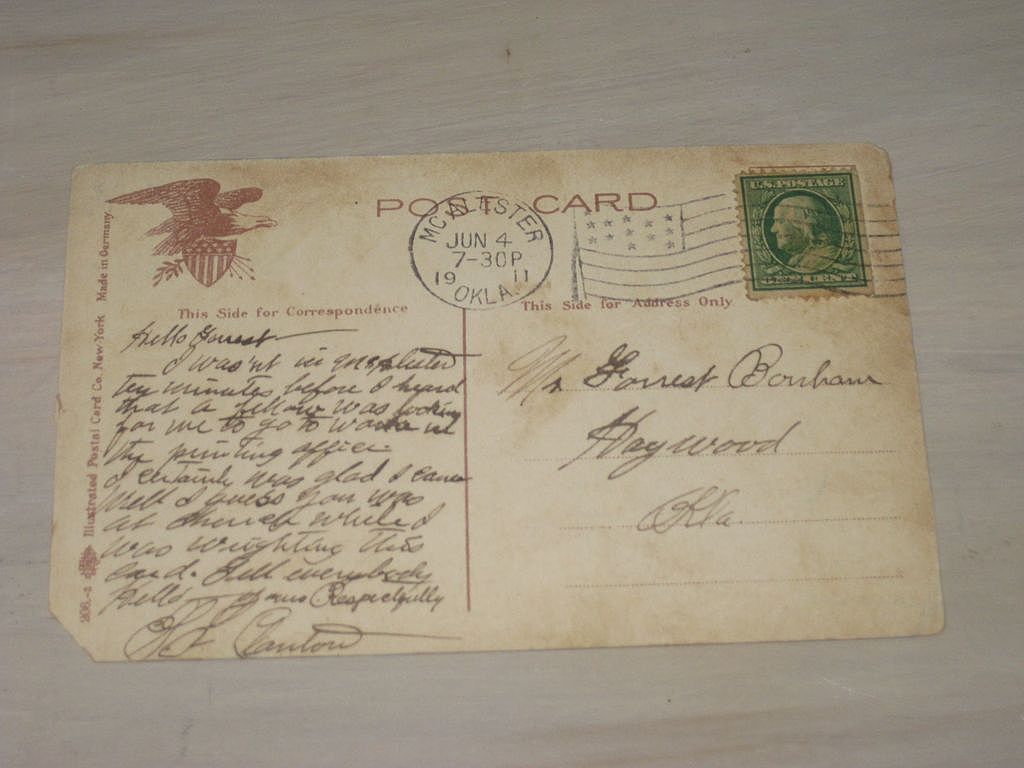 POST CARD
McALESTER
JUN 4
7-30P
19 11
OKLA.
U.S. POSTAGE
1 CENT 1
This Side for Correspondence
This Side for Address Only
Illustrated Postal Card Co. New-York Made in Germany.
206.-2
Hello Forrest
I was'nt in
ten minutes before I heard
that a fellow was looking
for me to go to work in
the printing office
I certainly was glad I came
Well I guess you was
at church while I
was wrighting this
card. Tell everybody
Hello yours Respectfully
Mr Forrest Bonham
Haywood
Okla